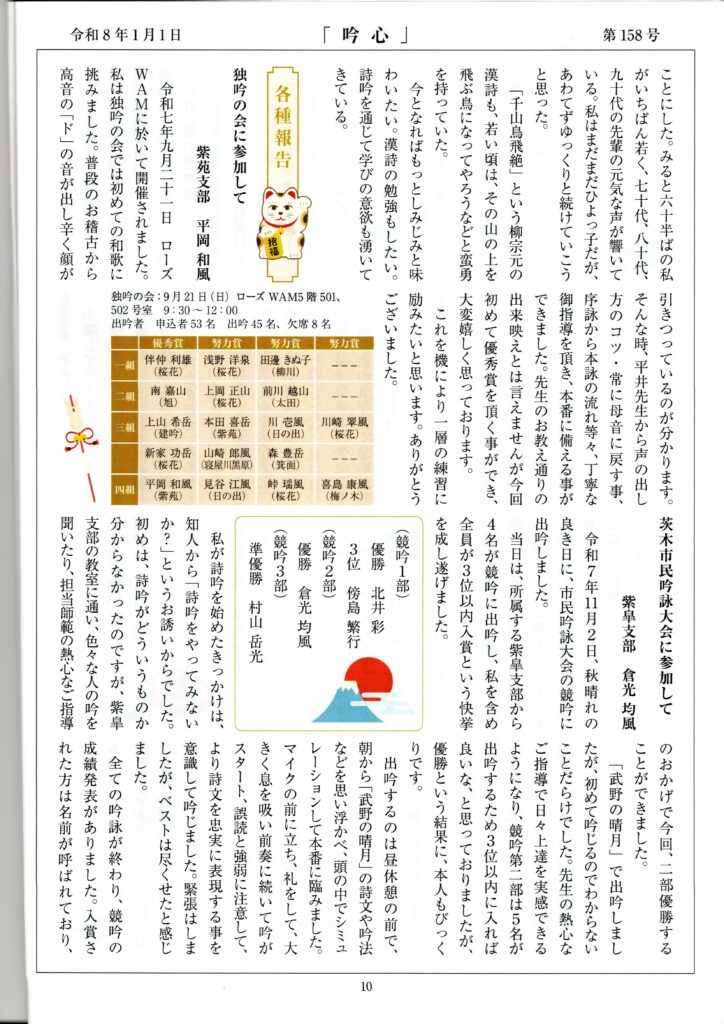 令和8年1月1日
「吟心」
第158号
ことにした。みると六十半ばの私
がいちばん若く、七十代、八十代、
九十代の先輩の元気な声が響いて
いる。私はまだまだひよっ子だが、
あわてずゆっくりと続けていこう
と思った。
「千山鳥飛絶」という柳宗元の
漢詩も、若い頃は、その山の上を
飛ぶ鳥になってやろうなどと蛮勇
を持っていた。
今となればもっとしみじみと味
わいたい。漢詩の勉強もしたい。
詩吟を通じて学びの意欲も湧いて
きている。
各種報告
招福
独吟の会に参加して
紫苑支部 平岡 和風
令和七年九月二十一日 ローズ
WAMに於いて開催されました。
私は独吟の会では初めての和歌に
挑みました。普段のお稽古から
高音の「ド」の音が出し辛く顔が
引きつっているのが分かります。
そんな時、平井先生から声の出し
方のコツ・常に母音に戻す事、
序詠から本詠の流れ等々、丁寧な
御指導を頂き、本番に備える事が
できました。先生のお教え通りの
出来映えとは言えませんが今回
初めて優秀賞を頂く事ができ、
大変嬉しく思っております。
これを機により一層の練習に
励みたいと思います。ありがとう
ございました。
独吟の会：9月21日（日）ローズWAM5階501、
502号室 9：30～12：00
出吟者 申込者53名 出吟45名、欠席8名
優秀賞 努力賞 努力賞 努力賞
一組 伴仲 利雄（桜花） 浅野 洋泉（桜花） 田邊 きぬ子（柳川） ---
二組 南 嘉山（旭） 上岡 正山（桜花） 前川 越山（太田） ---
三組 上山 希岳（建吟） 本田 喜岳（紫苑） 川 壱風（日の出） 川崎 翠風（桜花）
新家 功岳（桜花） 山崎 郎風（寝屋川黒原） 森 豊岳（箕面） ---
四組 平岡 和風（紫苑） 見谷 江風（日の出） 峠 瑶風（桜花） 喜島 康風（梅ノ木）
茨木市民吟詠大会に参加して
紫皐支部 倉光 均風
令和7年11月2日、秋晴れの
良き日に、市民吟詠大会の競吟に
出吟しました。
当日は、所属する紫皐支部から
4名が競吟に出吟し、私を含め
全員が3位以内入賞という快挙
を成し遂げました。
（競吟1部）
優勝 北井 彩
3位 傍島 繁行
（競吟2部）
優勝 倉光 均風
（競吟3部）
準優勝 村山 岳光
私が詩吟を始めたきっかけは、
知人から「詩吟をやってみない
か？」というお誘いからでした。
初めは、詩吟がどういうものか
分からなかったのですが、紫皐
支部の教室に通い、色々な人の吟を
聞いたり、担当師範の熱心なご指導
のおかげで今回、二部優勝する
ことができました。
「武野の晴月」で出吟しまし
たが、初めて吟じるのでわからない
ことだらけでした。先生の熱心な
ご指導で日々上達を実感できる
ようになり、競吟第二部は5名が
出吟するため3位以内に入れば
良いな、と思っておりましたが、
優勝という結果に、本人もびっく
りです。
出吟するのは昼休憩の前で、
朝から「武野の晴月」の詩文や吟法
などを思い浮かべ、頭の中でシミュ
レーションして本番に臨みました。
マイクの前に立ち、礼をして、大
きく息を吸い前奏に続いて吟が
スタート、誤読と強弱に注意して、
より詩文を忠実に表現する事を
意識して吟じました。緊張はしま
したが、ベストは尽くせたと感じ
ました。
全ての吟詠が終わり、競吟の
成績発表がありました。入賞さ
れた方は名前が呼ばれており、
10